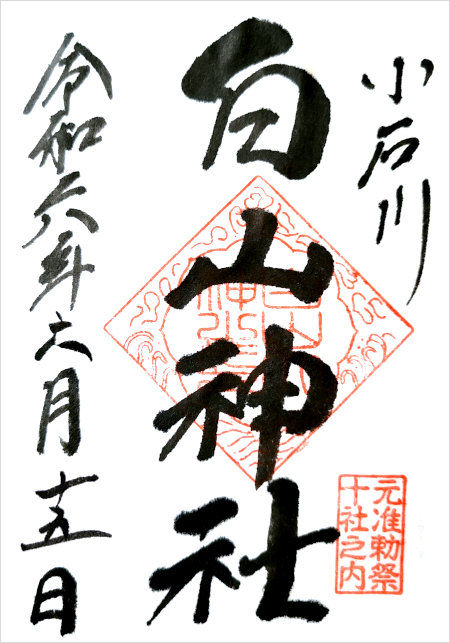 小石川
白山神社
元准勅祭
十社之内
令和六年六月十五日